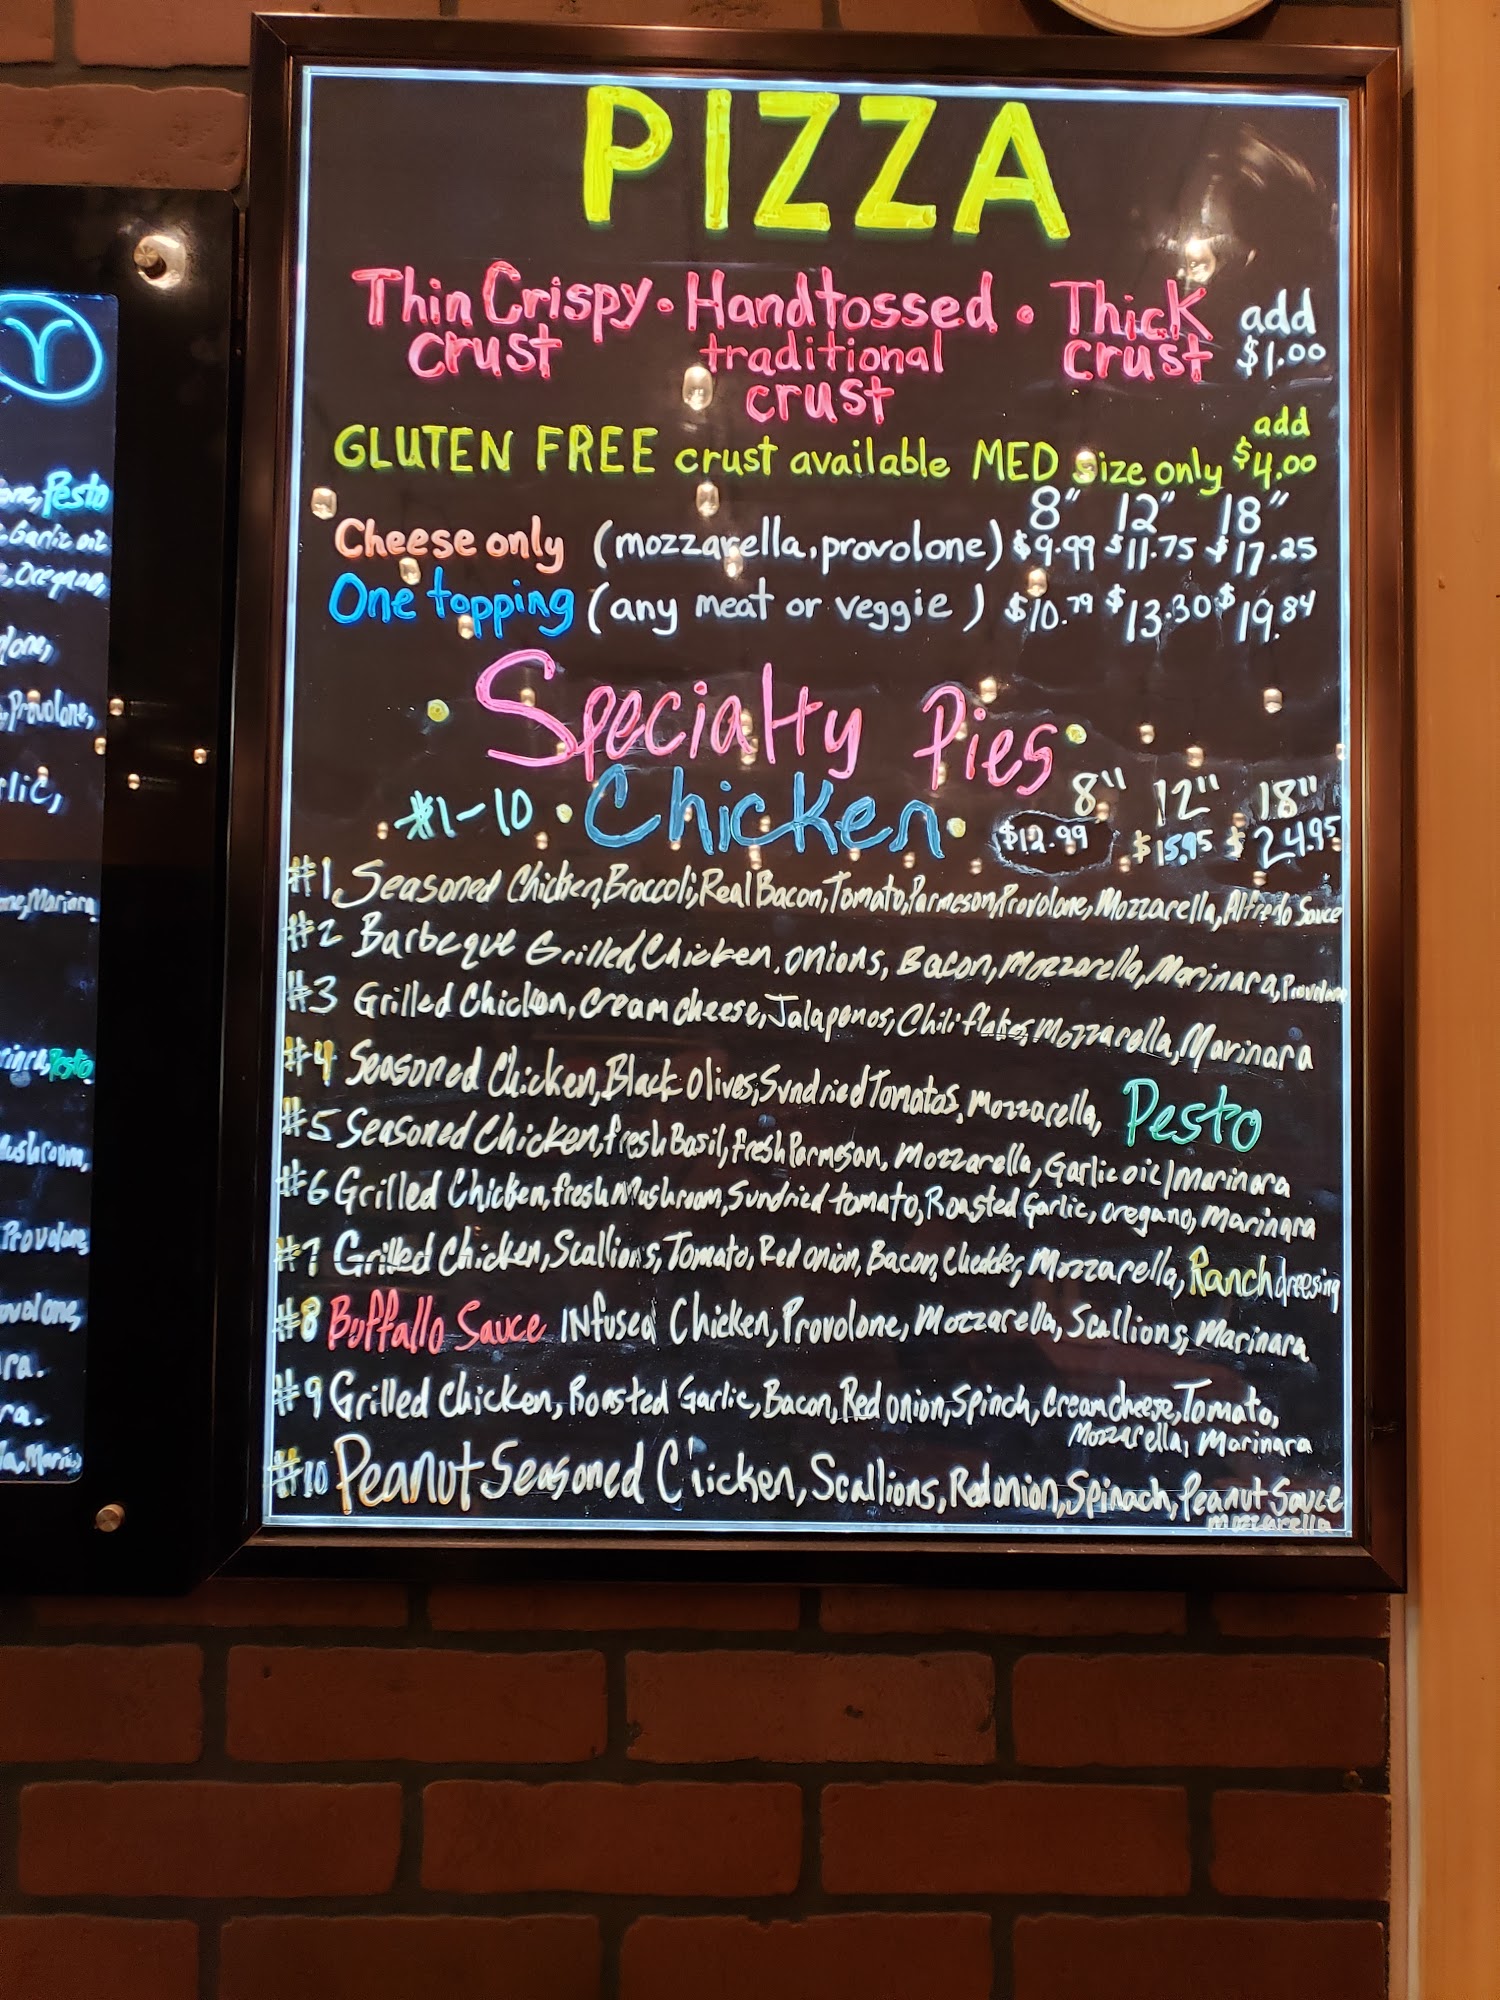 PIZZA
Thin Crispy • Handtossed • Thick add
crust traditional crust $1.00
crust
add
GLUTEN FREE crust available MED size only $4.00
8" 12" 18"
Cheese only (mozzarella, provolone) $9.99 $11.75 $17.25
One topping (any meat or veggie) $10.79 $13.30 $19.84
• Specialty Pies •
8" 12" 18"
#1-10 • Chicken • $12.99 $15.95 $24.95
#1 Seasoned Chicken, Broccoli, Real Bacon, Tomato, Parmeson, Provolone, Mozzarella, Alfredo Sauce
#2 Barbeque Grilled Chicken, onions, Bacon, Mozzarella, Marinara, Provolone
#3 Grilled Chicken, Cream cheese, Jalapenos, Chili flakes, Mozzarella, Marinara
#4 Seasoned Chicken, Black Olives, Sundried Tomatos, Mozzarella, Pesto
#5 Seasoned Chicken, fresh Basil, fresh Parmesan, Mozzarella, Garlic oil/marinara
#6 Grilled Chicken, fresh Mushroom, Sundried tomato, Roasted Garlic, oregano, Marinara
#7 Grilled Chicken, Scallions, Tomato, Red onion, Bacon, Chedder, Mozzarella, Ranch dressing
#8 Buffallo Sauce INfused Chicken, Provolone, Mozzarella, Scallions, Marinara
#9 Grilled Chicken, Roasted Garlic, Bacon, Red onion, Spinch, Cream cheese, Tomato,
Mozzarella, Marinara
#10 Peanut Seasoned Chicken, Scallions, Red onion, Spinach, Peanut Sauce
Mozzarella
Pesto
Garlic oil
Oregano,
Provolone,
Pesto
Mushroom,
Provolone